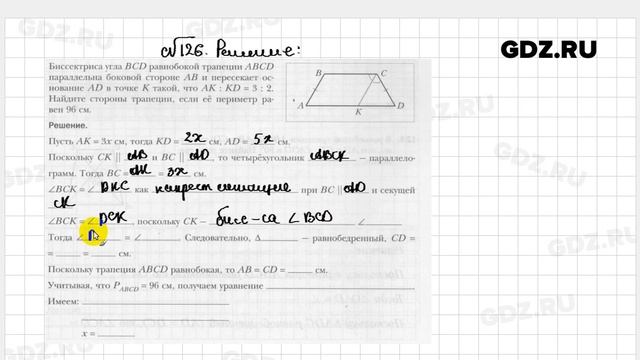 №126. Решение:
GDZ.RU
Биссектриса угла BCD равнобокой трапеции ABCD
параллельна боковой стороне AB и пересекает ос-
нование AD в точке K такой, что AK : KD = 3 : 2.
Найдите стороны трапеции, если её периметр ра-
вен 96 см.
B C
A K D
Решение.
Пусть AK = 3x см, тогда KD = 2x см, AD = 5x см.
Поскольку CK || AB и BC || AD, то четырёхугольник ABCK — паралелло-
грамм. Тогда BC = AK = 3x см.
∠BCK = ∠ DKC как накрест лежащие при BC || AD и секущей
CK
∠BCK = ∠ DCK, поскольку CK – бисс-са ∠BCD ∠
Тогда ∠ = ∠ . Следовательно, Δ — равнобедренный, CD =
= = см.
Поскольку трапеция ABCD равнобокая, то AB = CD = см.
Учитывая, что P ABCD = 96 см, получаем уравнение
Имеем:
x =